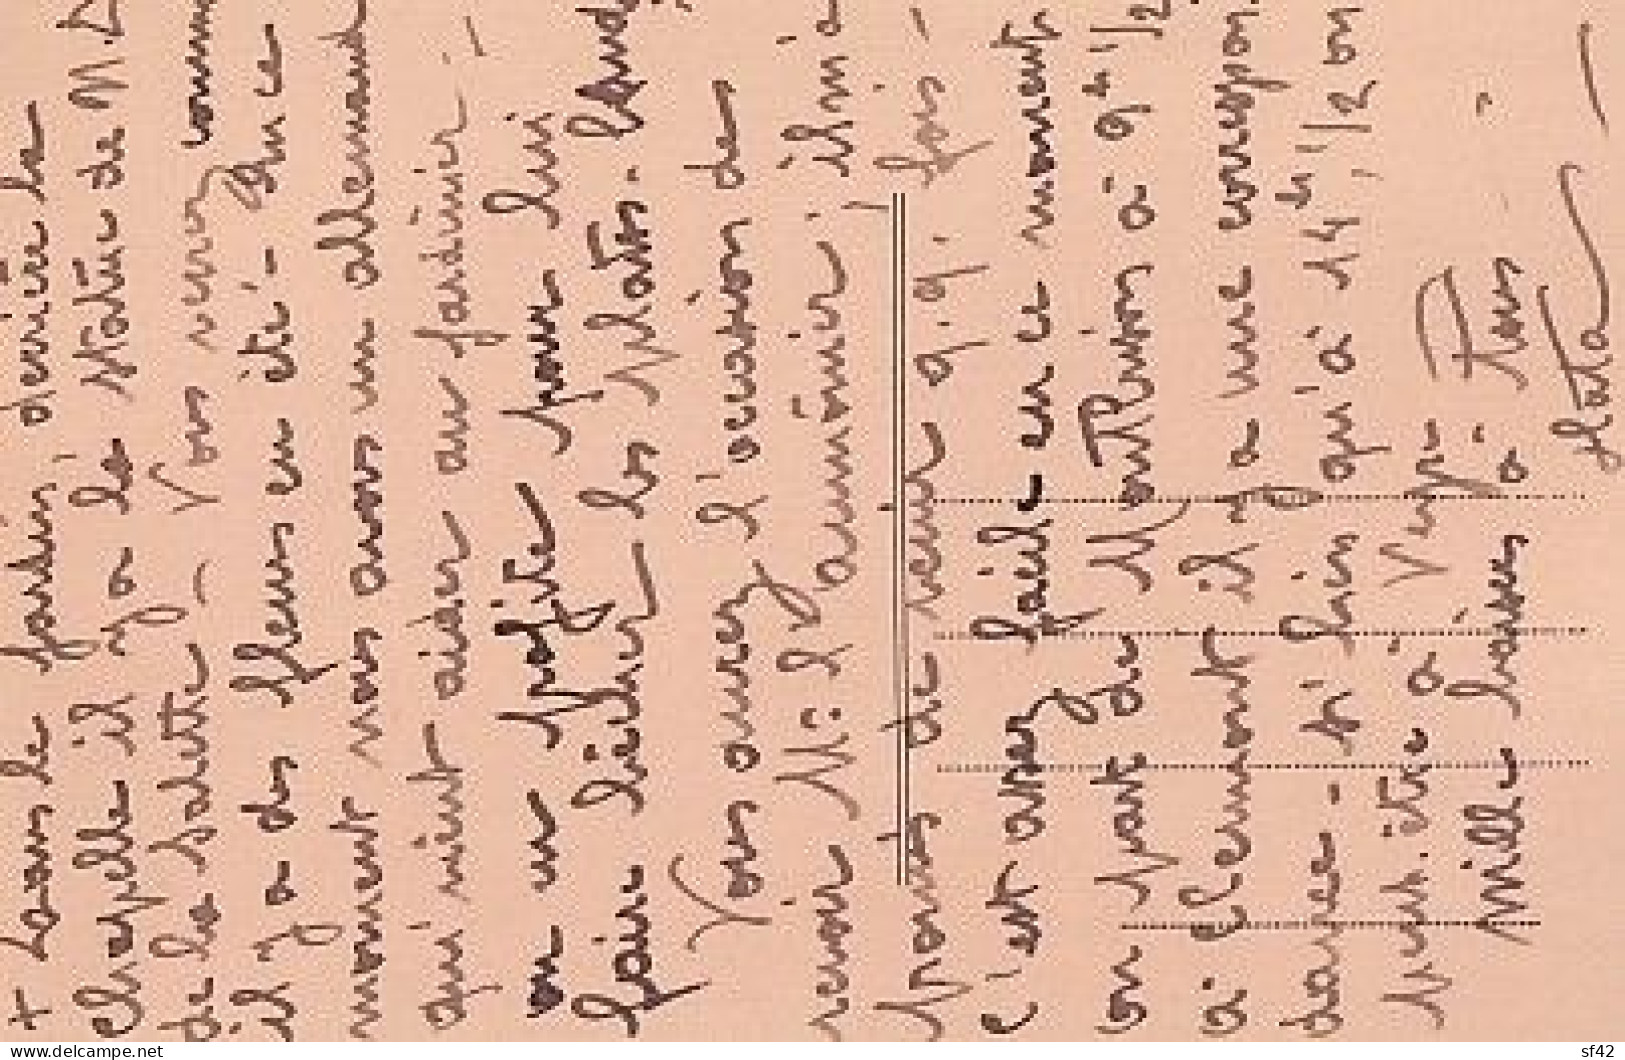 + Dans le jardin, derrière la
chapelle il y a la statue de N.D
de la Salette - Vous verrez comme
il y a des fleurs en été - En ce
moment nous avons un allemand
qui vient aider au jardinier -
on en profite pour lui
faire bêcher les plates-bandes,
Vous aurez l'occasion de
revoir Mr l'aumônier, il m'a
promis de venir q.q. fois -
c'est assez facile en ce moment,
on part de Montluçon à 9h 1/2
à Clermont il y a une correspon-
dance - s'il bien qu'à 14h, 1/2 on
peut-être à Veyre
Mille baisers à tous -
delcampe.net
sf42